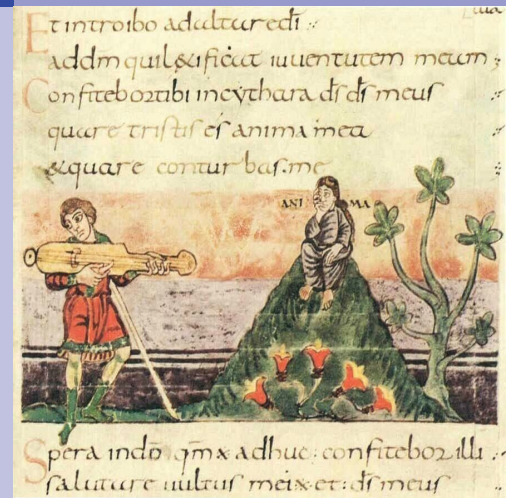 Et introibo ad altare dī :·
ad dm̄ qui l&ificat iuventutem meam ;
Confitebor tibi in cythara d̄s d̄s meus :·
quare tristis es anima mea :·
& quare conturbas me
ANI MA
Spera in dō qm̄ adhuc confitebor illi :·
salutare uultus mei et d̄s meus